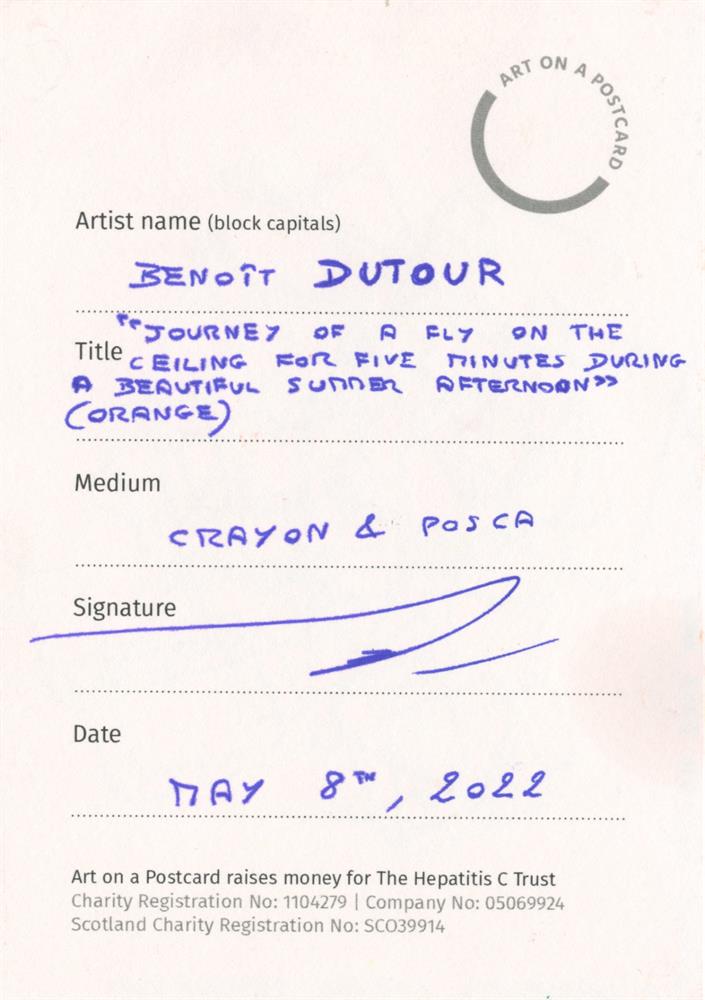 ART ON A POSTCARD
Artist name (block capitals)
BENOÎT DUTOUR
"JOURNEY OF A FLY ON THE
Title CEILING FOR FIVE MINUTES DURING
A BEAUTIFUL SUMMER AFTERNOON"
(ORANGE)
Medium
CRAYON & POSCA
Signature
Date
MAY 8TH, 2022
Art on a Postcard raises money for The Hepatitis C Trust
Charity Registration No: 1104279 | Company No: 05069924
Scotland Charity Registration No: SCO39914